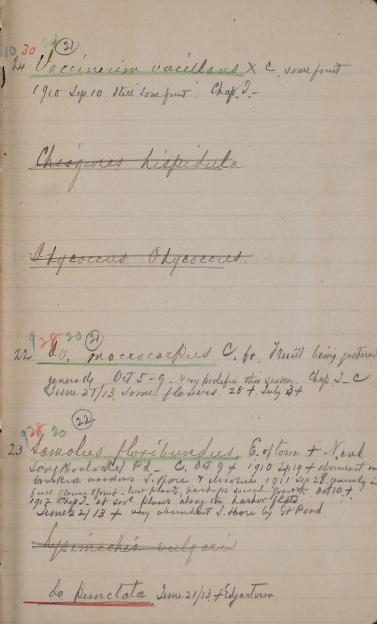 10 30 20 21
24 Vaccinium vacillans X C. some fruit
1910 Sep. 10 Still some fruit. Chap. I.-
Chiogenes hispidula
Oxycoccus Oxycoccus.
9 28 20 21
22 do. macrocarpus C. fr. Fruit being gathered
generally Oct 5-9 - very prolific this season. Chap I - C
June 27/13, some flowers. 28 +. July 3 +
9 28 20 22
23 Samolus floribundus, E. of town +
Pd - C. Oct 9 + 1910 Sep 19 + abundant in
brackish meadows S. shore & elsewhere 1911 Sep 28 generally in
full flower & fruit - low plants, perhaps second growth Oct 10 +
1912 Sep 2 + at sert plants along the harbor flats
June 22/13 + very abundant S. shore by Gt Pond.
Lysimachia vulgaris
do punctata June 21/13 + Edgartown